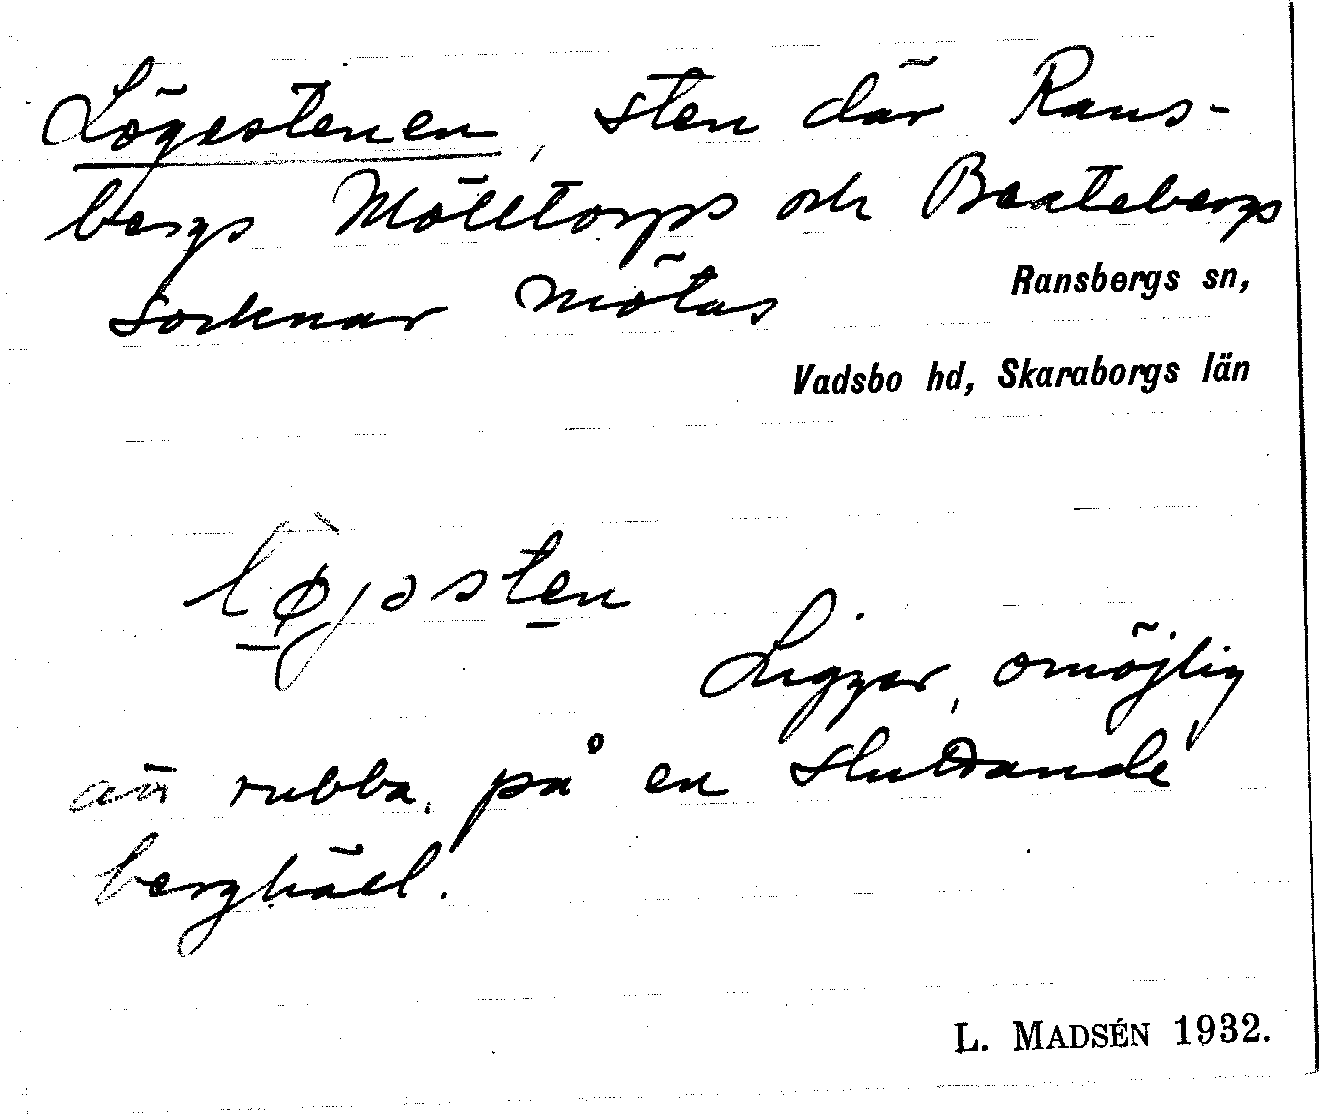 Lögestenen, sten där Rans-
bergs Mölltorps och Beatebergs
socknar mötas
Ransbergs sn,
Vadsbo hd, Skaraborgs län
lø̀jəsten
Ligger, omöjlig
att rubba, på en sluttande
berghäll.
L. MADSÉN 1932.